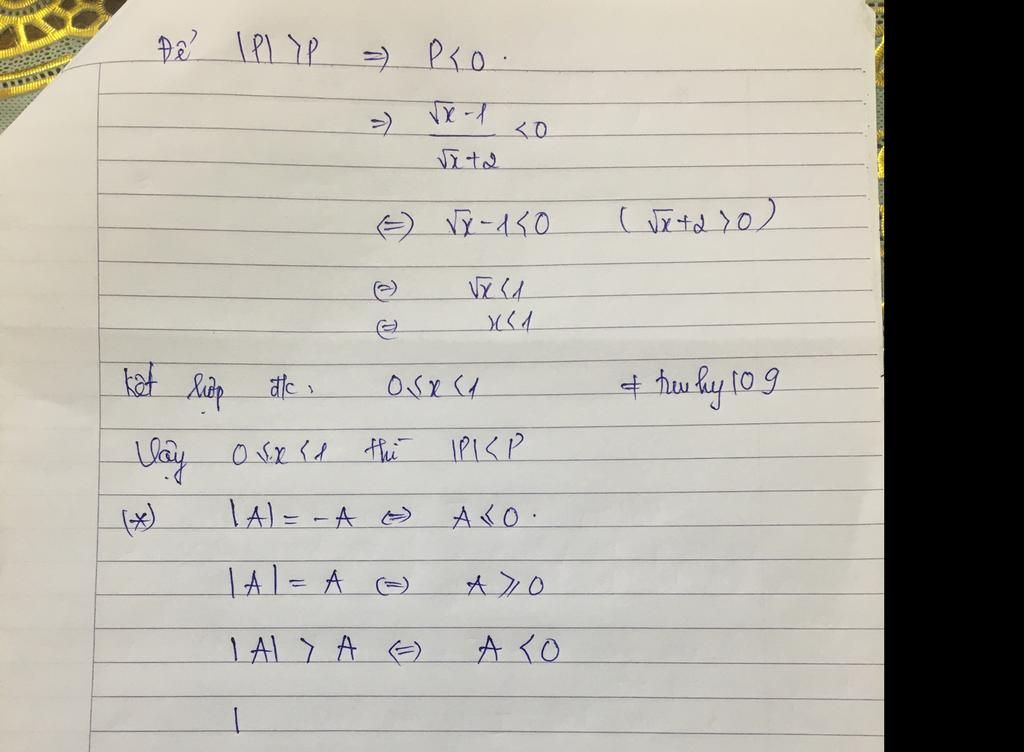 Để |P| > P ⇒ P < 0.
⇒ (√x - 1)/(√x + 2) < 0
⇔ √x - 1 < 0 (√x + 2 > 0)
⇔ √x < 1
⇔ x < 1
Kết hợp đ/c: 0 ≤ x < 1
Vậy 0 ≤ x < 1 thì |P| < P
(*) |A| = -A ⇔ A ≤ 0.
|A| = A ⇔ A ≥ 0
|A| > A ⇔ A < 0
|